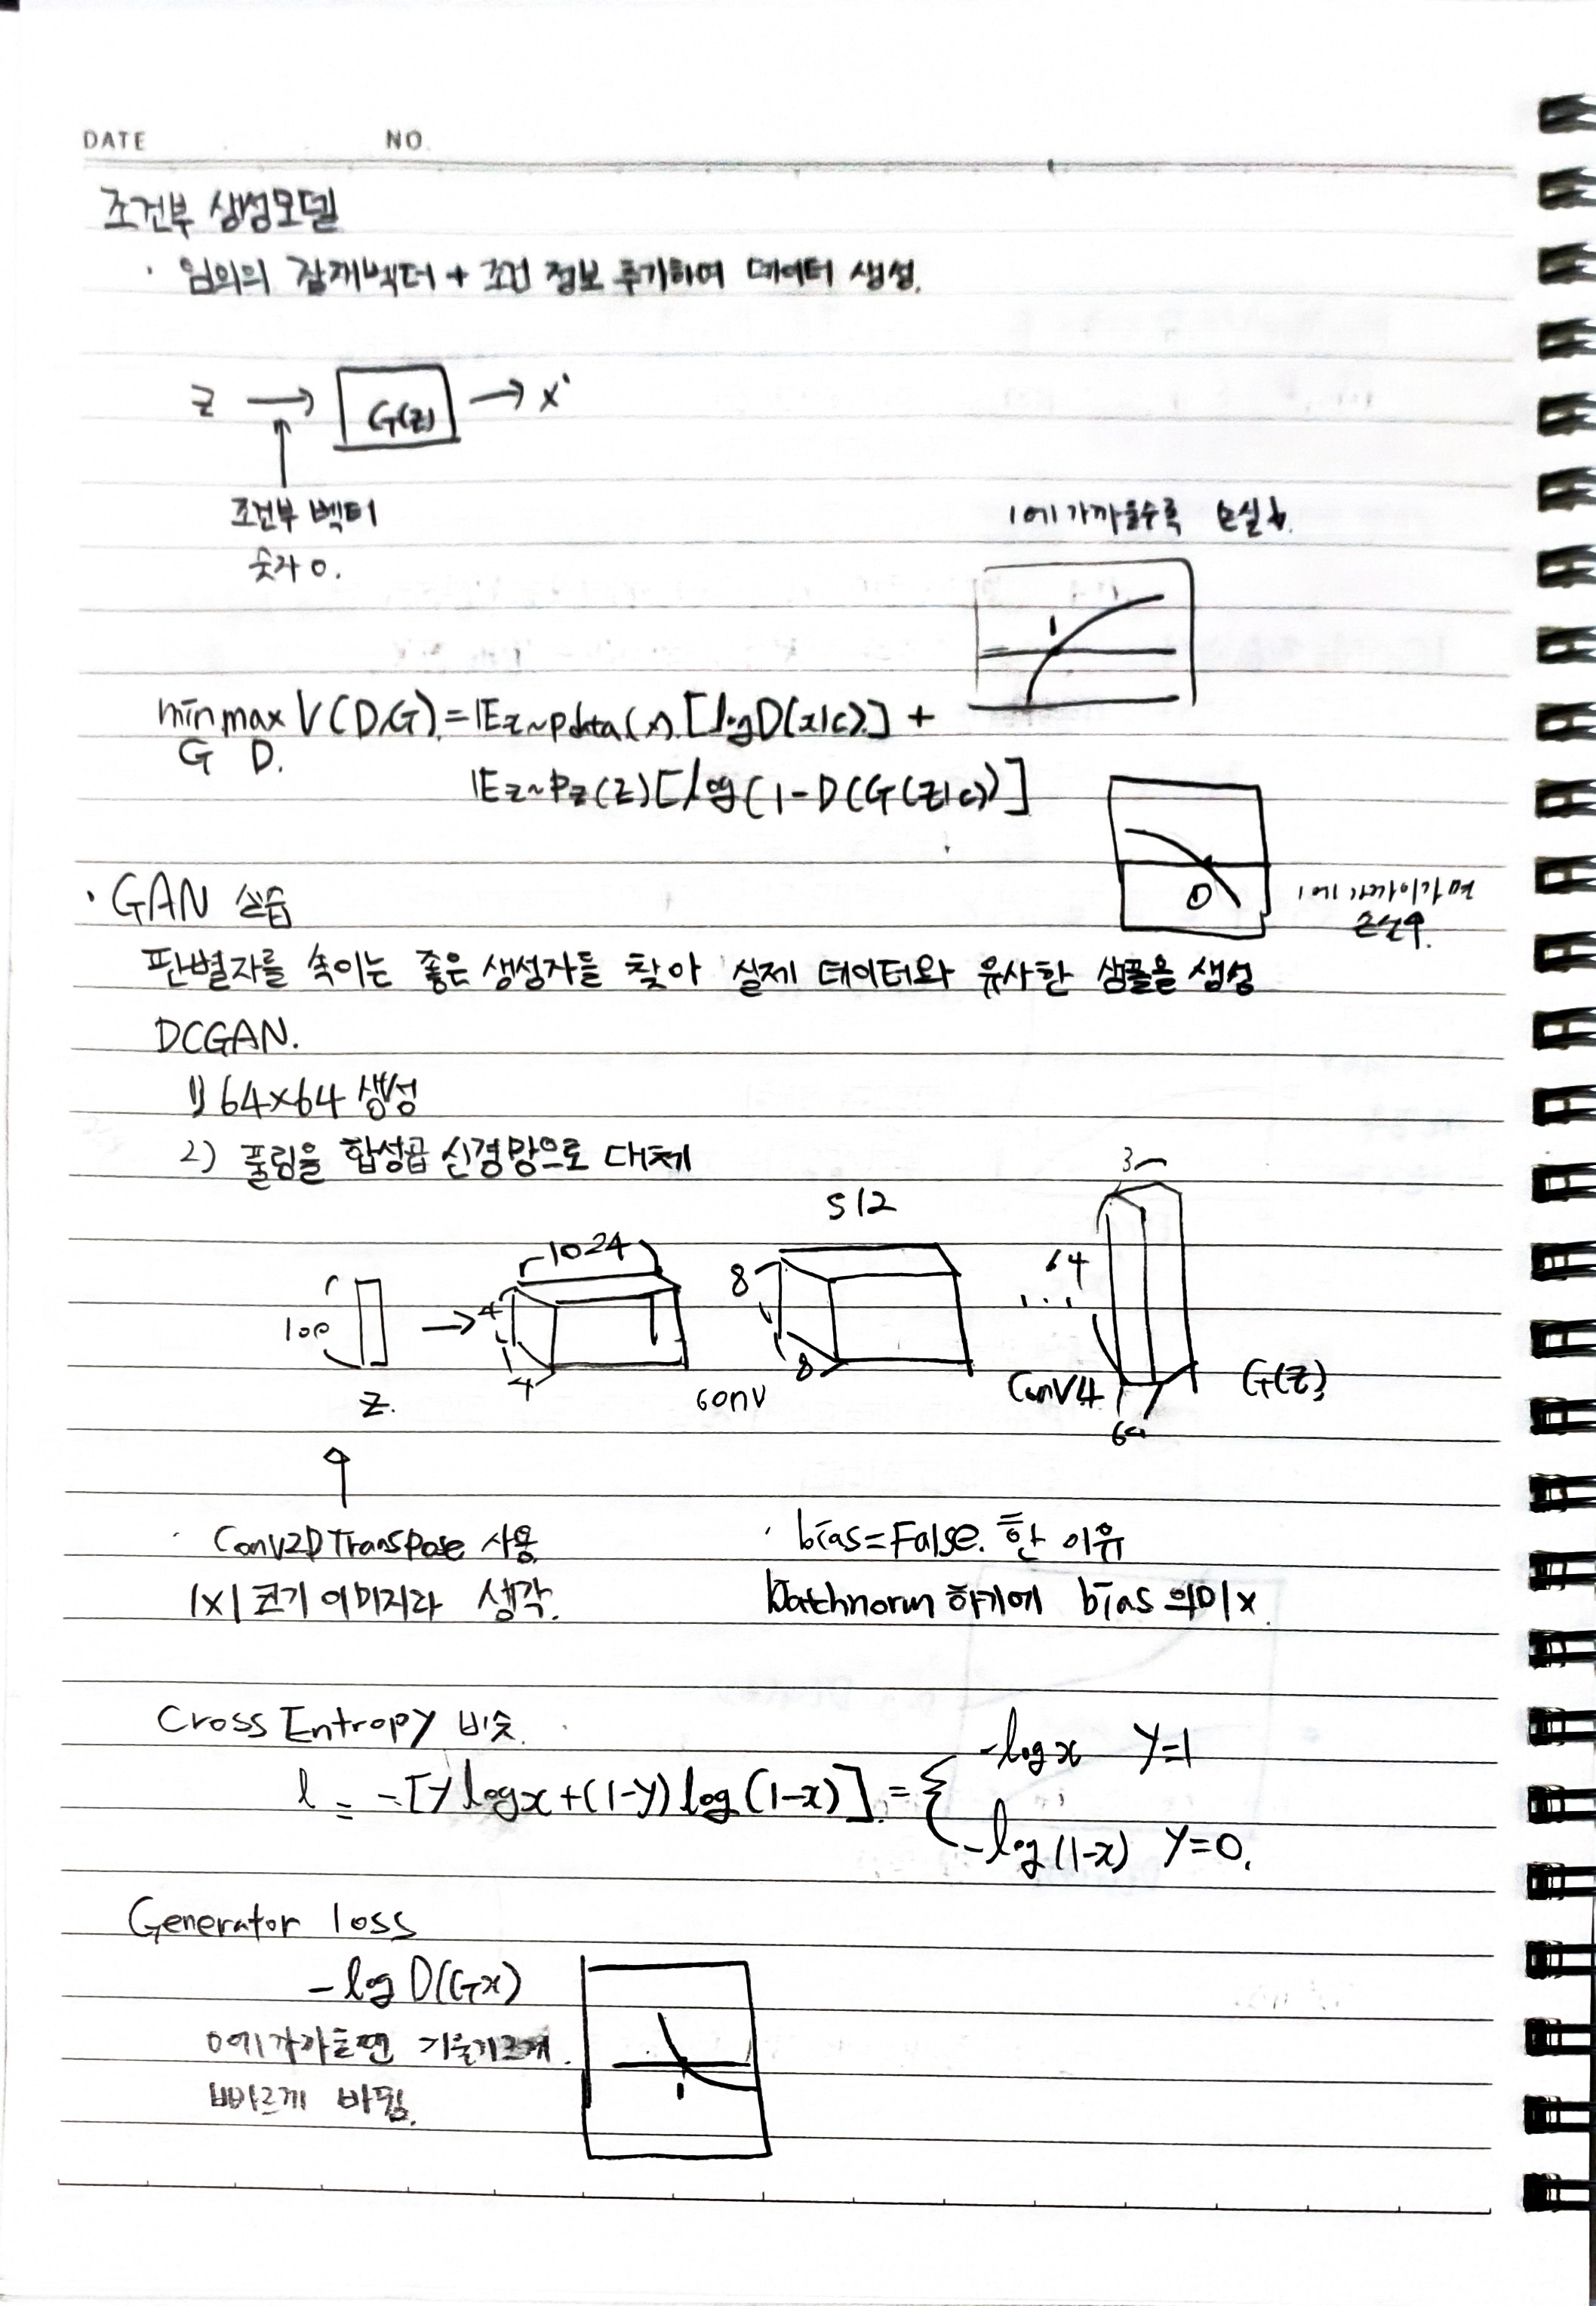 DATE NO.
조건부 생성모델
· 임의의 잠재벡터 + 조건 정보 추가하여 데이터 생성.
z → G(z) → x'
조건부 벡터
숫자 0.
1에 가까울수록 손실↓.
1
min max V(D,G) = E x~pdata(x) [log D(x|c)] +
G D.
E z~pz(z) [log(1-D(G(z|c))]
0
1에 가까이가면
손실↑.
· GAN 실습
판별자를 속이는 좋은 생성자를 찾아 실제 데이터와 유사한 샘플을 생성
DCGAN.
1) 64x64 생성
2) 풀링을 합성곱 신경망으로 대체
3
1024 512
100 → 4 8 ... 64
4 8
z. conv Conv4 G(z)
64
· Conv2DTranspose 사용
1x1 크기 이미지라 생각.
· bias=False. 한 이유
batchnorm 하기에 bias 의미 x.
Cross Entropy 비슷.
l = -[y log x + (1-y) log (1-x)] = { -log x y=1
-log (1-x) y=0.
Generator loss
-log D(Gx)
0에 가까우면 기울기크게.
빠르게 바뀜.
1